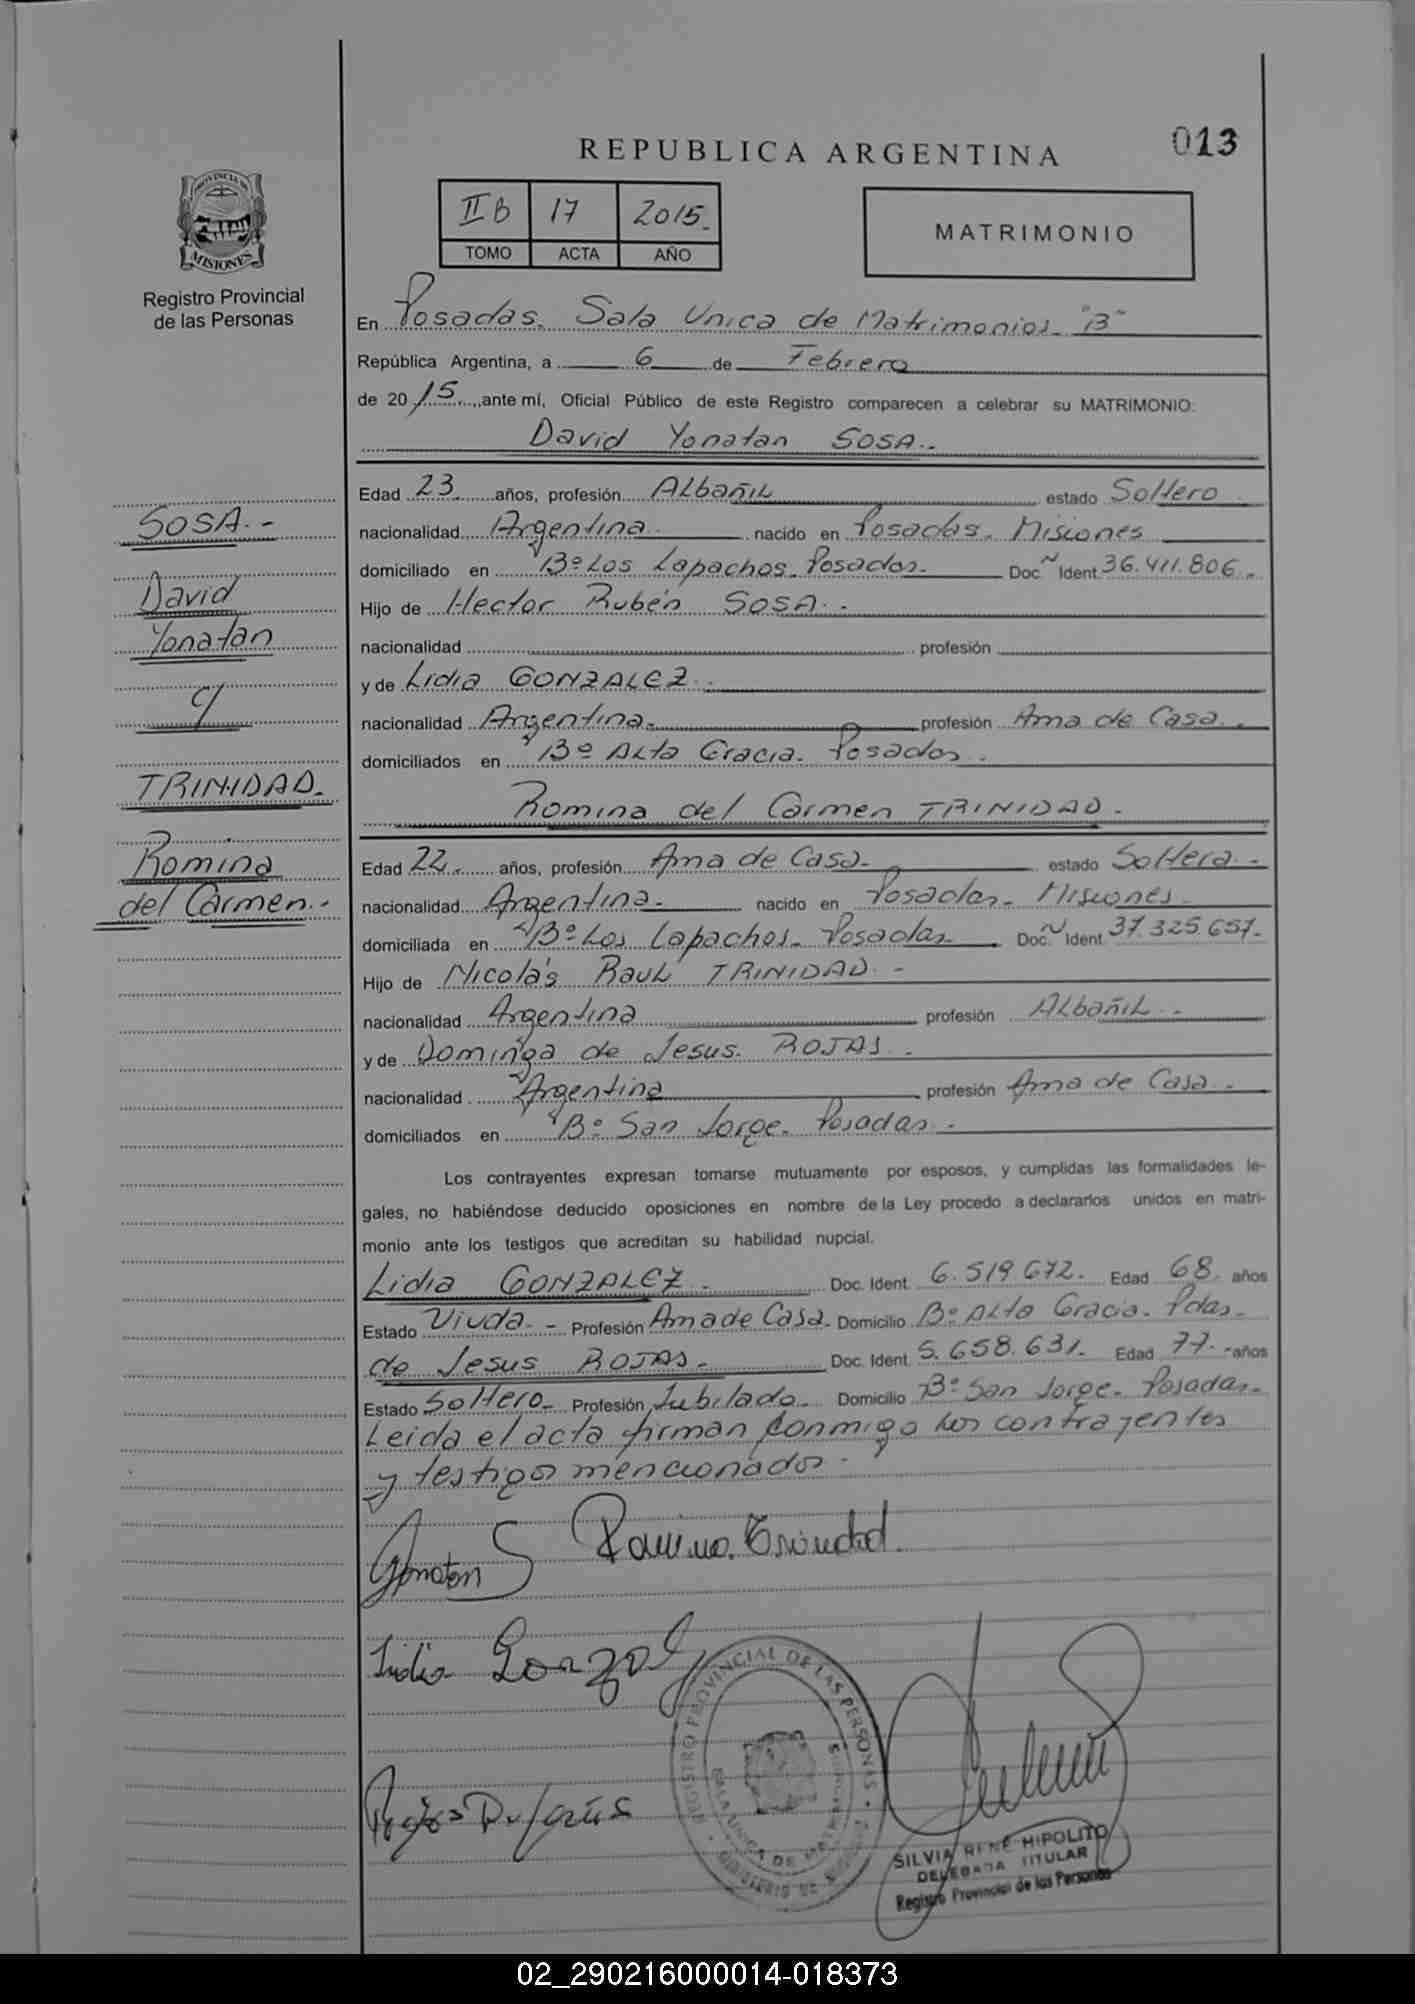 REPUBLICA ARGENTINA
013
PROVINCIA DE
MISIONES
Registro Provincial
de las Personas
II B 17 2015.
TOMO ACTA AÑO
MATRIMONIO
En Posadas. Sala Unica de Matrimonios "B"
República Argentina, a 6 de Febrero
de 20 15 ante mí, Oficial Público de este Registro comparecen a celebrar su MATRIMONIO:
David Yonatan SOSA.-
Edad 23 años, profesión Albañil estado Soltero
nacionalidad Argentina nacido en Posadas. Misiones
domiciliado en Bº Los Lapachos. Posadas. Doc. Ident. 36.411.806.
Hijo de Hector Rubén SOSA.-
nacionalidad profesión
y de Lidia GONZALEZ.
nacionalidad Argentina. profesión Ama de Casa.
domiciliados en Bº Alta Gracia. Posadas.
Romina del Carmen TRINIDAD.
Edad 22. años, profesión Ama de Casa. estado Soltera.-
nacionalidad Argentina. nacido en Posadas. Misiones.
domiciliada en Bº Los Lapachos. Posadas. Doc. Ident. 37.325.657.
Hijo de Nicolás Raul TRINIDAD.-
nacionalidad Argentina profesión Albañil.-
y de Dominga de Jesus. ROJAS.
nacionalidad Argentina profesión Ama de Casa.-
domiciliados en Bº San Jorge. Posadas.-
Los contrayentes expresan tomarse mutuamente por esposos, y cumplidas las formalidades le-
gales, no habiéndose deducido oposiciones en nombre de la Ley procedo a declararlos unidos en matri-
monio ante los testigos que acreditan su habilidad nupcial.
Lidia GONZALEZ.- Doc. Ident. 6.519.672. Edad 68. años
Estado Viuda.- Profesión Ama de Casa. Domicilio Bº Alta Gracia. Pdas.-
de Jesus ROJAS.- Doc. Ident. 5.658.631. Edad 77.- años
Estado Soltero.- Profesión Jubilado. Domicilio Bº San Jorge. Posadas.-
Leida el acta firman conmigo los contrayentes
y testigos mencionados.-
SOSA.-
David
Yonatan
c/
TRINIDAD.
Romina
del Carmen.-
Yonatan S
Romina Trinidad.
Lidia Gonzalez
Rojas De Jesús
REGISTRO PROVINCIAL DE LAS PERSONAS
SALA UNICA DE MATRIMONIOS
MINISTERIO DE
SILVIA RENE HIPOLITO
DELEGADA TITULAR
Registro Provincial de las Personas
02_290216000014-018373